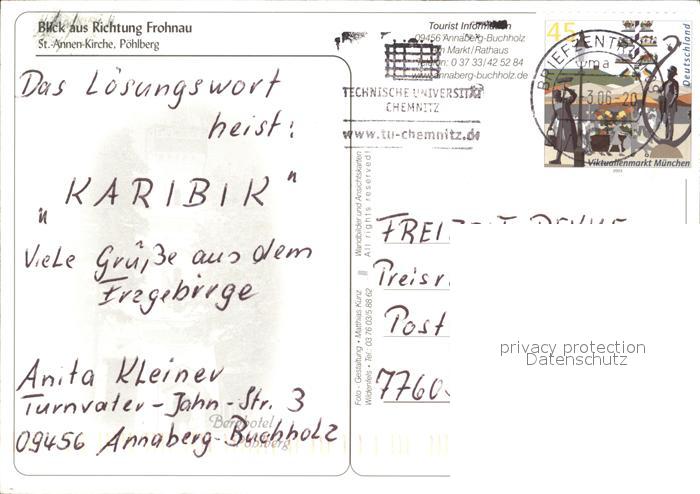 Blick aus Richtung Frohnau
St.-Annen-Kirche, Pöhlberg
Das Lösungswort
heist:
"KARIBIK"
Viele Grüße aus dem
Erzgebirge
Anita Kleiner
Turnvater-Jahn-Str. 3
09456 Annaberg-Buchholz
Berghotel
Pöhlberg
Tourist Information
09456 Annaberg-Buchholz
Markt/Rathaus
Telefon: 0 37 33/42 52 84
www.annaberg-buchholz.de
TECHNISCHE UNIVERSITÄT
CHEMNITZ
www.tu-chemnitz.de
45
Deutschland
BRIEFZENTRUM
Viktualienmarkt München
2003
Foto - Gestaltung • Matthias Kunz
Wildenfels • Tel.: 03 76 03/5 88 62
Wandbilder und Ansichtskarten
All rights reserved!
FREIZEIT REVUE
Preisr
Post
7760
privacy protection
Datenschutz